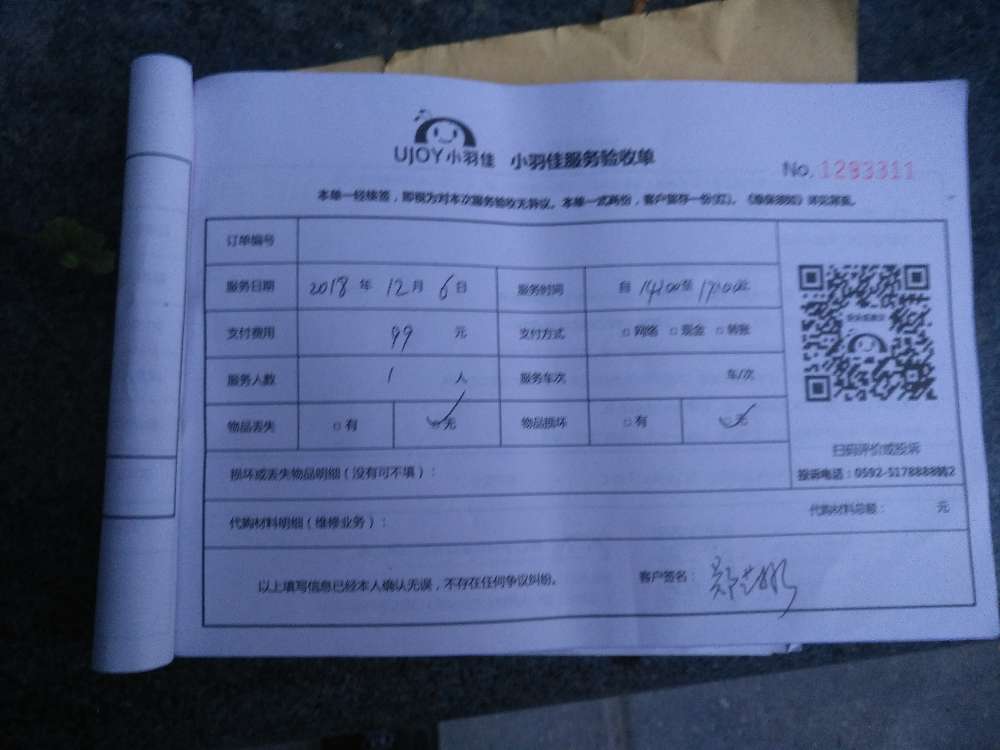 UJOY小羽佳 小羽佳服务验收单
No. 1293311
本单一经核签，即视为对本次服务验收无异议。本单一式两份，客户留存一份(红)。
订单编号
服务日期 2018 年 12 月 6 日 服务时间 自 14:00 至 17:00
支付费用 99 元 支付方式 □ 网络 □ 现金 □ 转账
服务人数 1 人 服务车次 车/次
物品丢失 □ 有 ✓ 无 物品损坏 □ 有 ✓ 无
扫码评价或投诉
投诉电话：0592-5178888转2
损坏或丢失物品明细（没有可不填）：
代购材料明细（维修业务）： 代购材料总额： 元
以上填写信息已经本人确认无误，不存在任何争议纠纷。 客户签名：